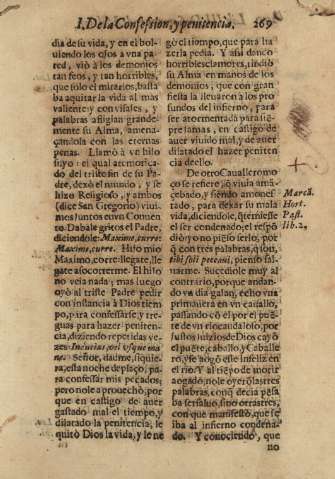 I. De la Confession, y penitencia. 269
dia de su vida, y en el bol-
uiendo los ojos a vna pa
red, viò a los demonios
tan feos, y tan horribles,
que solo el mirarlos, basta
ba a quitar la vida al mas
valiente, y con visales, y
palabras afligian grande-
mente su Alma, amena-
çandola con las eternas
penas. Llamò à vn hijo
suyo: el qual atemorica-
do del triste fin de su Pa
dre, dexò el mundo, y se
hizo Religioso, y ambos
(dice San Gregorio) viui-
mos juntos en vn Conuen
to. Dabale gritos el Padre,
diciendole: Maximo, curre:
Maximo, curre: Hijo mio
Maximo, corre: llegate, lle
gate a socorrerme. El hijo
no veia nada; mas luego
oyò al triste Padre pedir
con instancia à Dios tiem
po, para confessarse, y tre-
guas para hazer peniten-
cia, diziendo repetidas ve-
zes: Inducias, vel vsque ma
ne. Señor, dadme, siquie-
ra, esta noche de plaço, pa
ra confessar mis pecados;
pero no le aprouechò, por
que en castigo de auer
gastado mal el tiempo, y
dilatado la penitencia, le
quitò Dios la vida, y le ne
gò el tiempo, que para ha
zerla pedia. Y assi dando
horribles clamores, rindiò
su Alma en manos de los
demonios, que con gran
fiesta la lleuaron a los pro
fundos del infierno, para
ser atormentada para siē-
pre jamas, en castigo de
auer viuido mal, y de auer
dilatado el hazer peniten
cia de ello.
De otro Cauallero mo
ço se refiere, q̃ viuia aman
cebado, y siendo amones-
tado, para dexar su mala
vida, diciendole, q̃ temiesse
el ser condenado; el respō
diò yo no pienso serlo, por
q̃ con tres palabras, q̃ son,
tibi soli peccaui, pienso sal-
uarme. Sucediole muy al
contrario, porque andan-
do vn dia galan, echo vna
primauera en vn cauallo,
passando cō el por el puē-
te de vn rio caudaloso, por
justos juizios de Dios cayò
el puēte, caballo, y Caballe
ro, y se aogò este infeliz en
el rio. Y al tiēpo de morir
aogado, no le oyerō las tres
palabras, conq̃ decia pēsa
ba ser saluo, sino otras tres,
con que manifestò, que se
iba al infierno condena-
do. Y conociendo, que
no
Marcā.
Hort.
Past.
lib. 2.